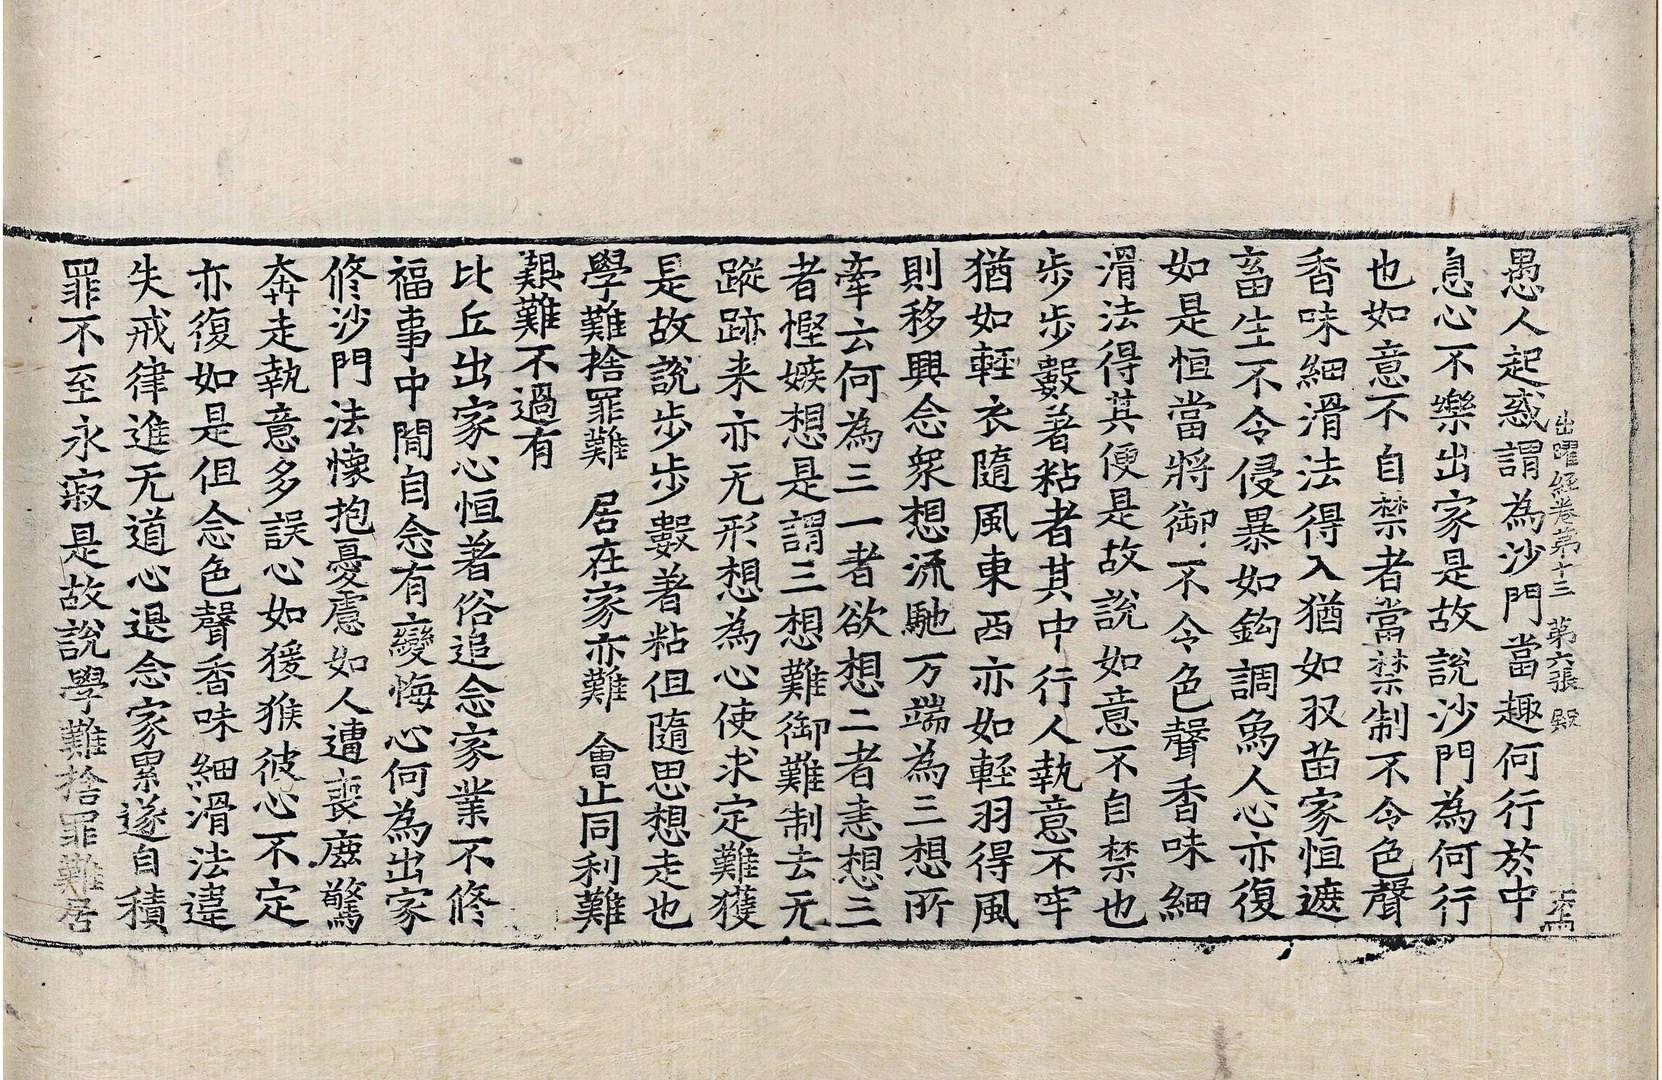 出曜經卷第十三 第六張 殿
愚人起惑謂為沙門當趣何行於中
息心不樂出家是故說沙門為何行
也如意不自禁者當禁制不令色聲
香味細滑法得入猶如収苗家恒遮
畜生不令侵暴如鈎調魚人心亦復
如是恒當將御不令色聲香味細
滑法得其便是故說如意不自禁也
步步數著粘者其中行人執意不牢
猶如輕衣隨風東西亦如輕羽得風
則移興念衆想流馳万端為三想所
牽云何為三一者欲想二者恚想三
者慳嫉想是謂三想難御難制去无
蹤跡来亦无形想為心使求定難獲
是故說步步數著粘但隨思想走也
學難捨罪難 居在家亦難 會止同利難
艱難不過有
比丘出家心恒著俗追念家業不修
福事中間自念有變悔心何為出家
修沙門法懷抱憂慮如人遭喪鹿驚
奔走執意多誤心如猨猴彼心不定
亦復如是但念色聲香味細滑法違
失戒律進无道心退念家累遂自積
罪不至永寂是故說學難捨罪難居